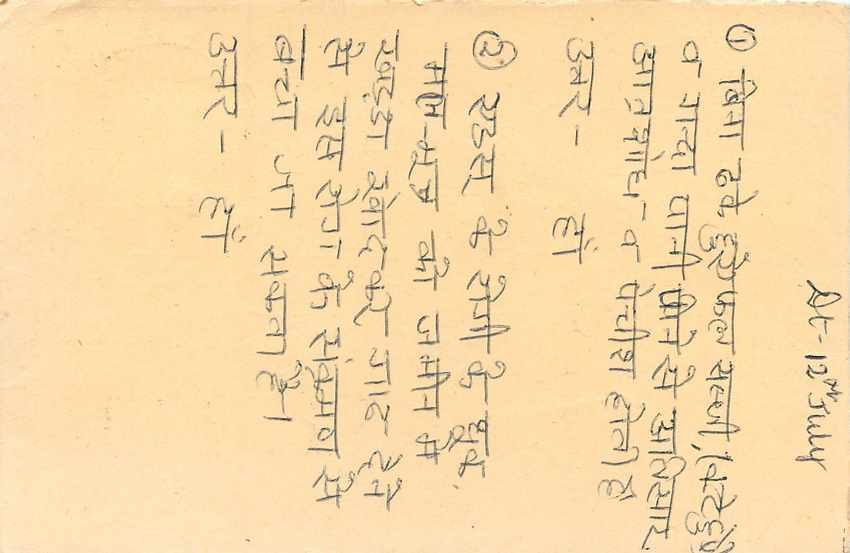 Dt- 12th July
① बिना ढके हुए फल सब्जी, (कटे हुए)
व गन्दा पानी पीने से अतिसार,
आत्रशोध - व पेचीश होती है
उत्तर - हाँ
② एडस के रोगी के थूक,
मल-मूत्र को जमीन में
खड्डा खोदकर गाड देने
से इस रोग के संक्रमण से
बचा जा सकता है।
उत्तर - हाँ